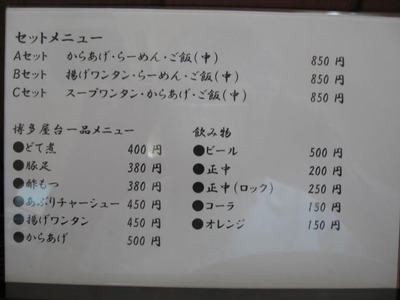 セットメニュー
Aセット からあげ・らーめん・ご飯(中) 850 円
Bセット 揚げワンタン・らーめん・ご飯(中) 850 円
Cセット スープワンタン・からあげ・ご飯(中) 850 円
博多屋台一品メニュー
●どて煮 400 円
●豚足 380 円
●酢もつ 380 円
●あぶりチャーシュー 450 円
●揚げワンタン 450 円
●からあげ 500 円
飲み物
●ビール 500 円
●正中 200 円
●正中(ロック) 250 円
●コーラ 150 円
●オレンジ 150 円